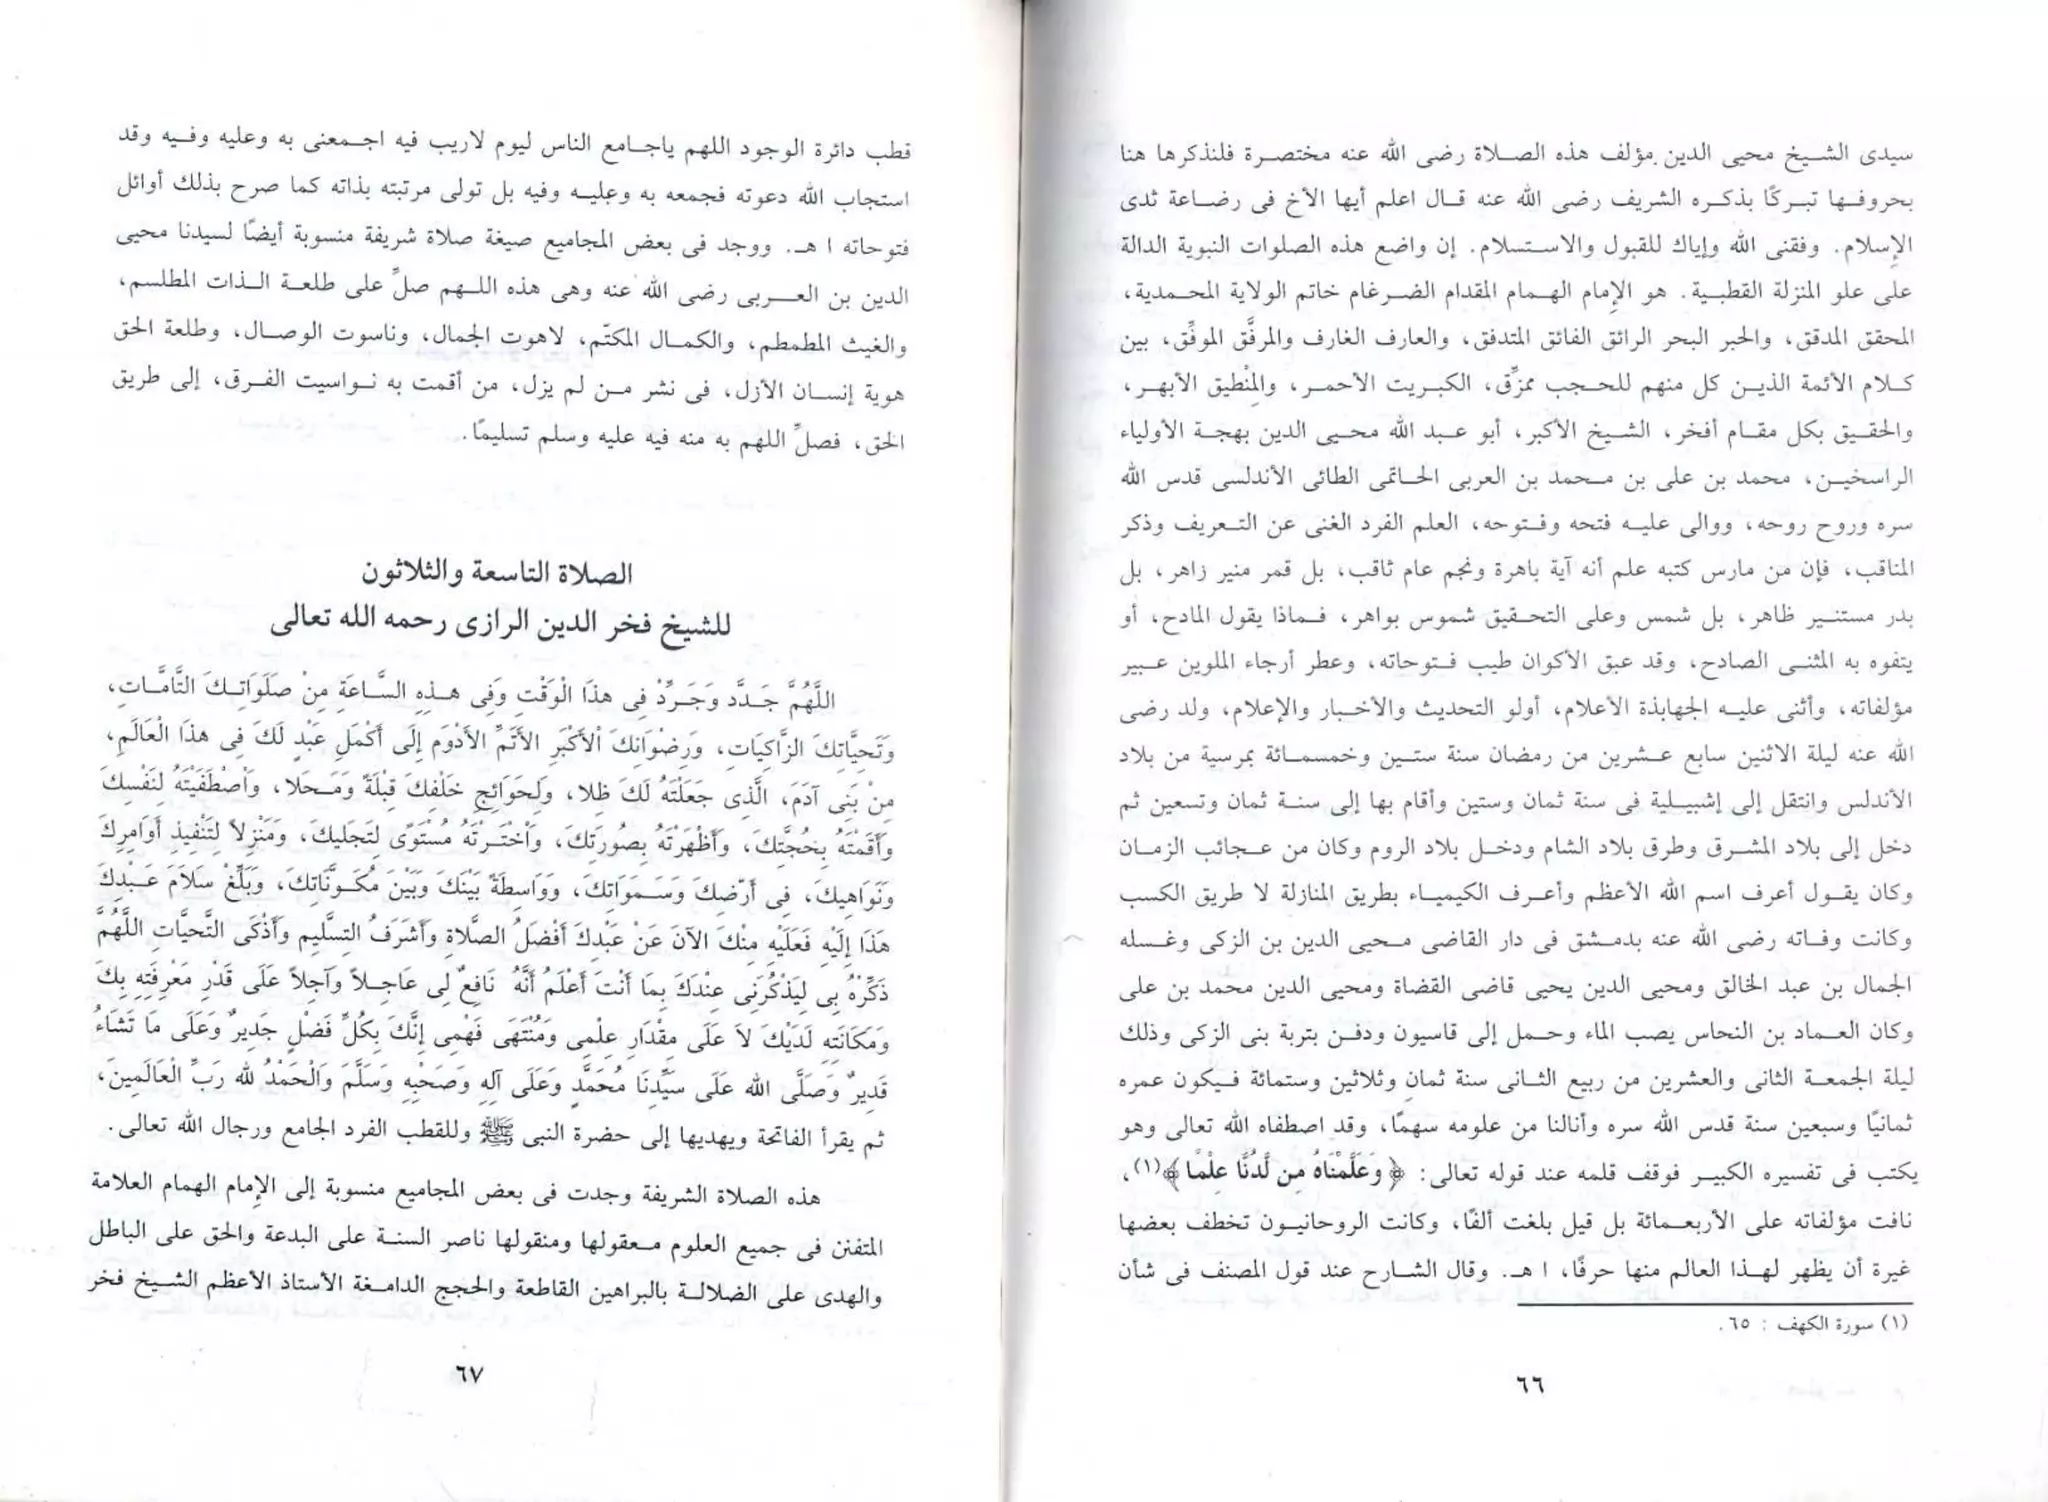 سيدى الشيخ محيى الدين مؤلف هذه الصلاة رضى الله عنه مختصرة فلنذكرها هنا
بحروفها تبركًا بذكره الشريف رضى الله عنه قال اعلم أيها الأخ فى رضاعة ثدى
الإسلام. وفقنى الله وإياك للقبول والاستسلام. إن واضع هذه الصلوات النبوية الدالة
على علو المنزلة القطبية. هو الإمام الهمام المقدام الضرغام خاتم الولاية المحمدية،
المحقق المدقق، والحبر البحر الرائق الفائق المتدفق، والعارف الغارف والمرفَّق الموفِّق، بين
كلام الأئمة الذين كل منهم للحجب ممزِّق، الكبريت الأحمر، والمِنْطيق الأبهر،
والحقيق بكل مقام أفخر، الشيخ الأكبر، أبو عبد الله محيى الدين بهجة الأولياء
الراسخين، محمد بن على بن محمد بن العربى الحاتمى الطائى الأندلسى قدس الله
سره وروح روحه، ووالى عليه فتحه وفتوحه، العلم الفرد الغنى عن التعريف وذكر
المناقب، فإن من مارس كتبه علم أنه آية باهرة ونجم عام ثاقب، بل قمر منير زاهر، بل
بدر مستنير ظاهر، بل شمس وعلى التحقيق شموس بواهر، فماذا يقول المادح، أو
يتفوه به المثنى الصادح، وقد عبق الأكوان طيب فتوحاته، وعطر أرجاء الملوين عبير
مؤلفاته، وأثنى عليه الجهابذة الأعلام، أولو التحديث والأخبار والإعلام، ولد رضى
الله عنه ليلة الاثنين سابع عشرين من رمضان سنة ستين وخمسمائة بمرسية من بلاد
الأندلس وانتقل إلى إشبيلية فى سنة ثمان وستين وأقام بها إلى سنة ثمان وتسعين ثم
دخل إلى بلاد المشرق وطرق بلاد الشام ودخل بلاد الروم وكان من عجائب الزمان
وكان يقول أعرف اسم الله الأعظم وأعرف الكيمياء بطريق المنازلة لا طريق الكسب
وكانت وفاته رضى الله عنه بدمشق فى دار القاضى محيى الدين بن الزكى وغسله
الجمال بن عبد الخالق ومحيى الدين يحيى قاضى القضاة ومحيى الدين محمد بن على
وكان العماد بن النحاس يصب الماء وحمل إلى قاسيون ودفن بتربة بنى الزكى وذلك
ليلة الجمعة الثانى والعشرين من ربيع الثانى سنة ثمان وثلاثين وستمائة فيكون عمره
ثمانيًا وسبعين سنة قدس الله سره وأنالنا من علومه سهمًا، وقد اصطفاه الله تعالى وهو
يكتب فى تفسيره الكبير فوقف قلمه عند قوله تعالى: ﴿وَعَلَّمْنَاهُ مِن لَّدُنَّا عِلْمًا﴾(١)،
نافت مؤلفاته على الأربعمائة بل قيل بلغت ألفًا، وكانت الروحانيون تخطف بعضها
غيرة أن يظهر لهذا العالم منها حرفًا، ا هـ. وقال الشارح عند قول المصنف فى شأن
(١) سورة الكهف : ٦٥.
٦٦
قطب دائرة الوجود اللهم ياجامع الناس ليوم لاريب فيه اجمعنى به وعليه وفيه وقد
استجاب الله دعوته فجمعه به وعليه وفيه بل تولى مرتبته بذاته كما صرح بذلك أوائل
فتوحاته ا هـ. ووجد فى بعض المجاميع صيغة صلاة شريفة منسوبة أيضًا لسيدنا محيى
الدين بن العربى رضى الله عنه وهى هذه اللهم صلِّ على طلعة الذات المطلسم،
والغيث المطمطم، والكمال المكتّم، لاهوت الجمال، وناسوت الوصال، وطلعة الحق
هوية إنسان الأزل، فى نشر من لم يزل، من أقمت به نواسيت الفرق، إلى طريق
الحق، فصلِّ اللهم به منه فيه عليه وسلم تسليمًا.
الصلاة التاسعة والثلاثون
للشيخ فخر الدين الرازى رحمه الله تعالى
اللَّهُمَّ جَدِّد وَجَرِّدْ فِى هذَا الْوَقْتِ وَفِى هذِهِ السَّاعَةِ مِنْ صَلَوَاتِكَ التَّامَّاتِ،
وَتَحِيَّاتِكَ الزَّاكِيَاتِ، وَرِضْوَانِكَ الْأَكْبَرِ الأَتَمِّ الأَدْوَمِ إِلَى أَكْمَلِ عَبْدٍ لَكَ فِى هذَا الْعَالَمِ،
مِنْ بَنِى آدَمَ، الَّذِى جَعَلْتَهُ لَكَ ظِلا، وَلِحَوَائِجِ خَلْقِكَ قِبْلَةً وَمَحَلا، وَاصْطَفَيْتَهُ لِنَفْسِكَ
وَأَقَمْتَهُ بِحُجَّتِكَ، وَأَظْهَرْتَهُ بِصُورَتِكَ، وَاخْتَرْتَهُ مُسْتَوًى لِتَجَلِيكَ، وَمَنْزِلاً لِتَنْفِيذِ أَوَامِرِكَ
وَنَوَاهِيكَ، فِى أَرْضِكَ وَسَمَوَاتِكَ، وَوَاسِطَةً بَيْنَكَ وَبَيْنَ مُكَوَّنَاتِكَ، وَبَلِّغْ سَلاَمَ عَبْدِكَ
هَذَا إِلَيْهِ فَعَلَيْهِ مِنْكَ الآنَ عَنْ عَبْدِكَ أَفْضَلُ الصَّلاَةِ وَأَشْرَفُ التسْلِيمِ وَأَذْكَى التَّحيَّاتِ اللَّهُمَّ
ذَكِّرْهُ بِى لِيَذْكُرَنِى عِنْدَكَ بِمَا أَنْتَ أَعْلَمُ أَنَّهُ نَافِعٌ لِى عَاجِلاً وَآجِلاً عَلَى قَدْرِ مَعْرِفَتِهِ بِكَ
وَمَكَانَتِهِ لَدَيْكَ لاَ عَلَى مِقْدَارِ عِلْمِى وَمُنْتَهَى فَهْمِى إِنَّكَ بِكُلِّ فَضْلٍ جَدِيرٌ وَعَلَى مَا تَشَاءُ
قَدِيرٌ وَصَلَّى الله عَلَى سَيِّدِنَا مُحَمَّدٍ وَعَلَى آلِهِ وَصَحْبِهِ وَسَلَّمَ وَالْحَمْدُ لله رَبِّ الْعَالَمِينَ،
ثم يقرأ الفاتحة ويهديها إلى حضرة النبى ﷺ وللقطب الفرد الجامع ورجال الله تعالى.
هذه الصلاة الشريفة وجدت فى بعض المجاميع منسوبة إلى الإمام الهمام العلامة
المتفنن فى جميع العلوم معقولها ومنقولها ناصر السنة على البدعة والحق على الباطل
والهدى على الضلالة بالبراهين القاطعة والحجج الدامغة الأستاذ الأعظم الشيخ فخر
٦٧